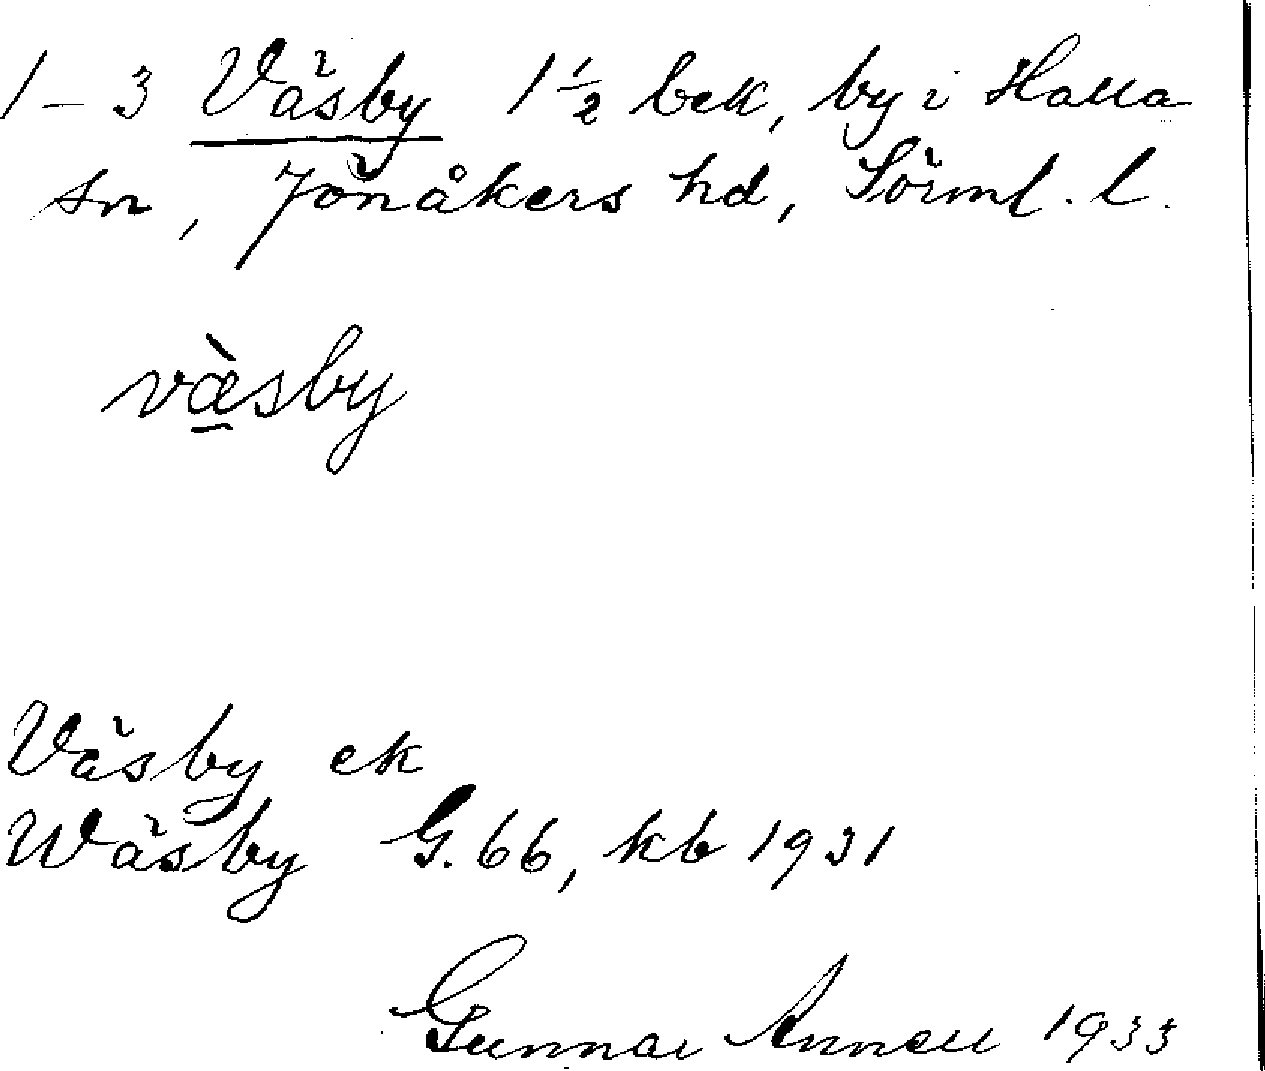 1–3 Väsby 1 1/2 bek, by i Halla
sn, Jönåkers hd, Sörml. l.
væ̀sby
Väsby ek
Wäsby G. 66, kb 1931
Gunnar Annell 1933